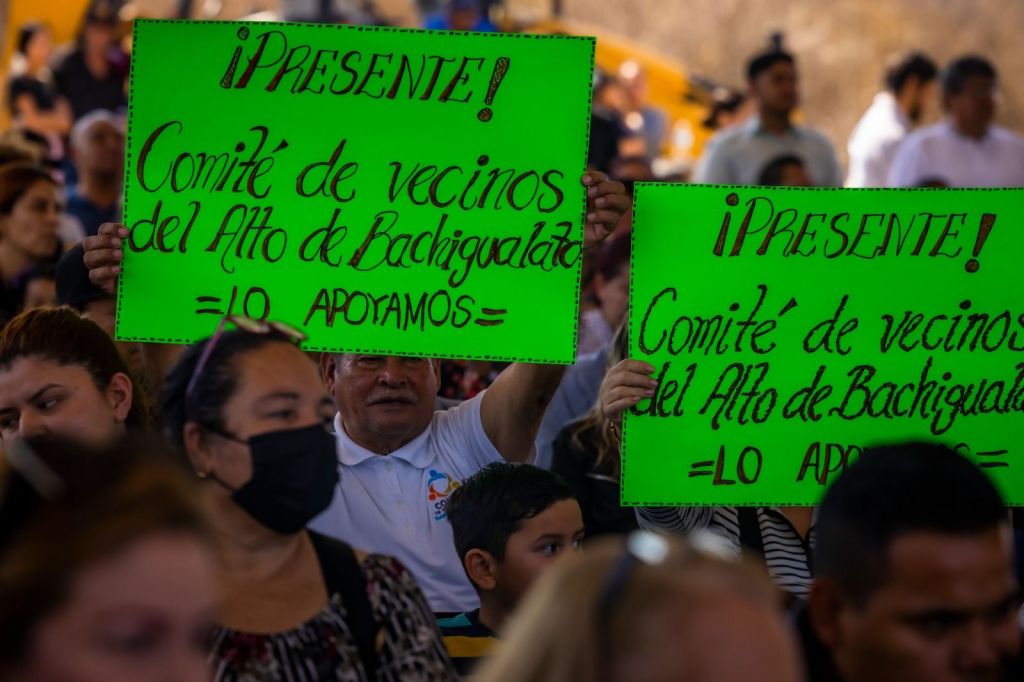 ¡PRESENTE!
Comité de vecinos
del Alto de Bachigualato
=LO APOYAMOS=
¡PRESENTE!
Comité de vecinos
del Alto de Bachigualat
=LO